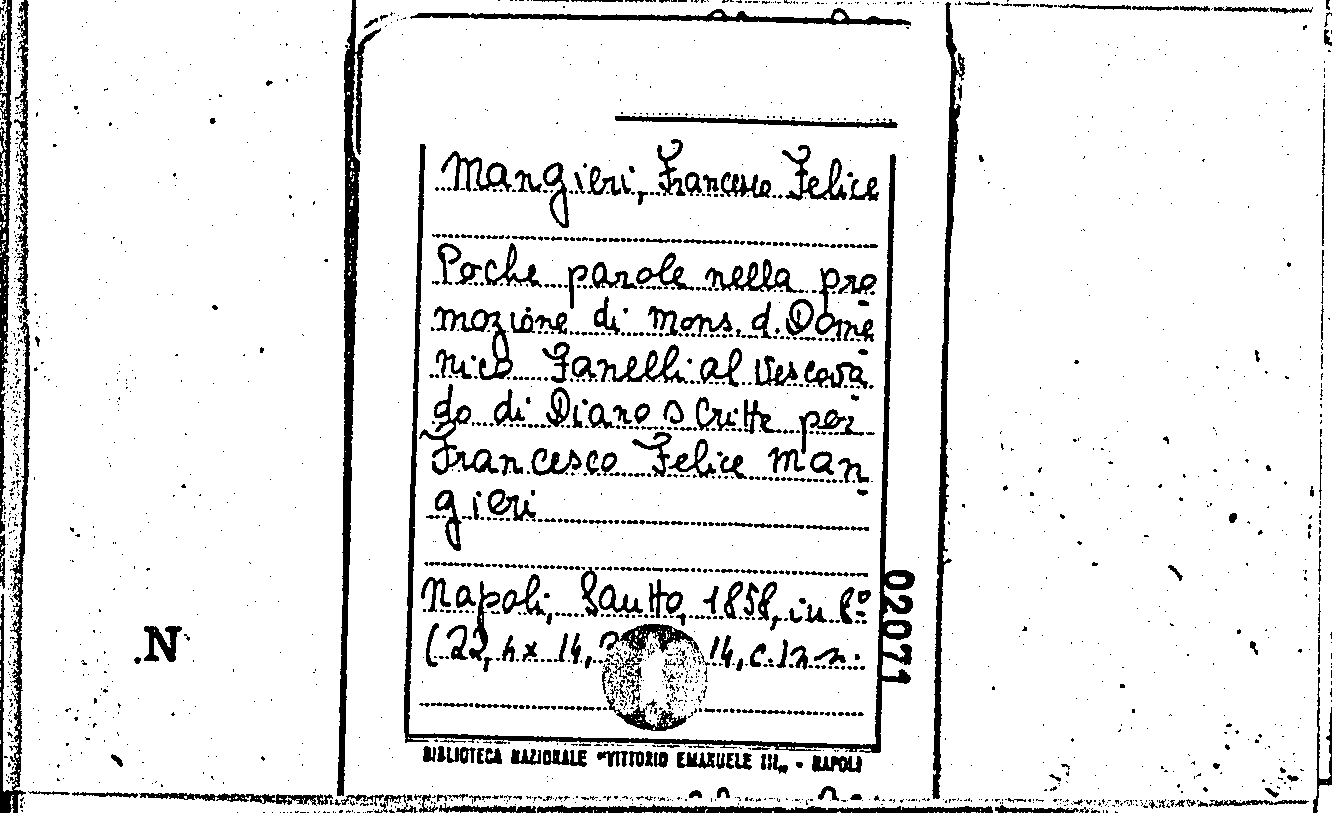 Mangieri, Francesco Felice
Poche parole nella pro
mozione di Mons. d. Dome
nico Fanelli al Vescova
do di Diano scritte per
Francesco Felice Man
gieri
Napoli, Sautto, 1858, in 8º
(22, 4x 14, 14, c. 1 2 n.
02071
.N
BIBLIOTECA NAZIONALE "VITTORIO EMANUELE III„ - NAPOLI